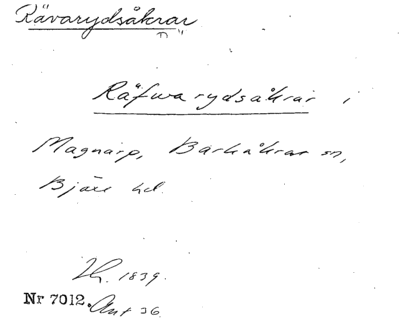 Rävarydsåkrar
Räfwarydsåkrar i
Magnarp, Barkåkras sn,
Bjäre hd.
1839.
Nr 7012. Ant 36